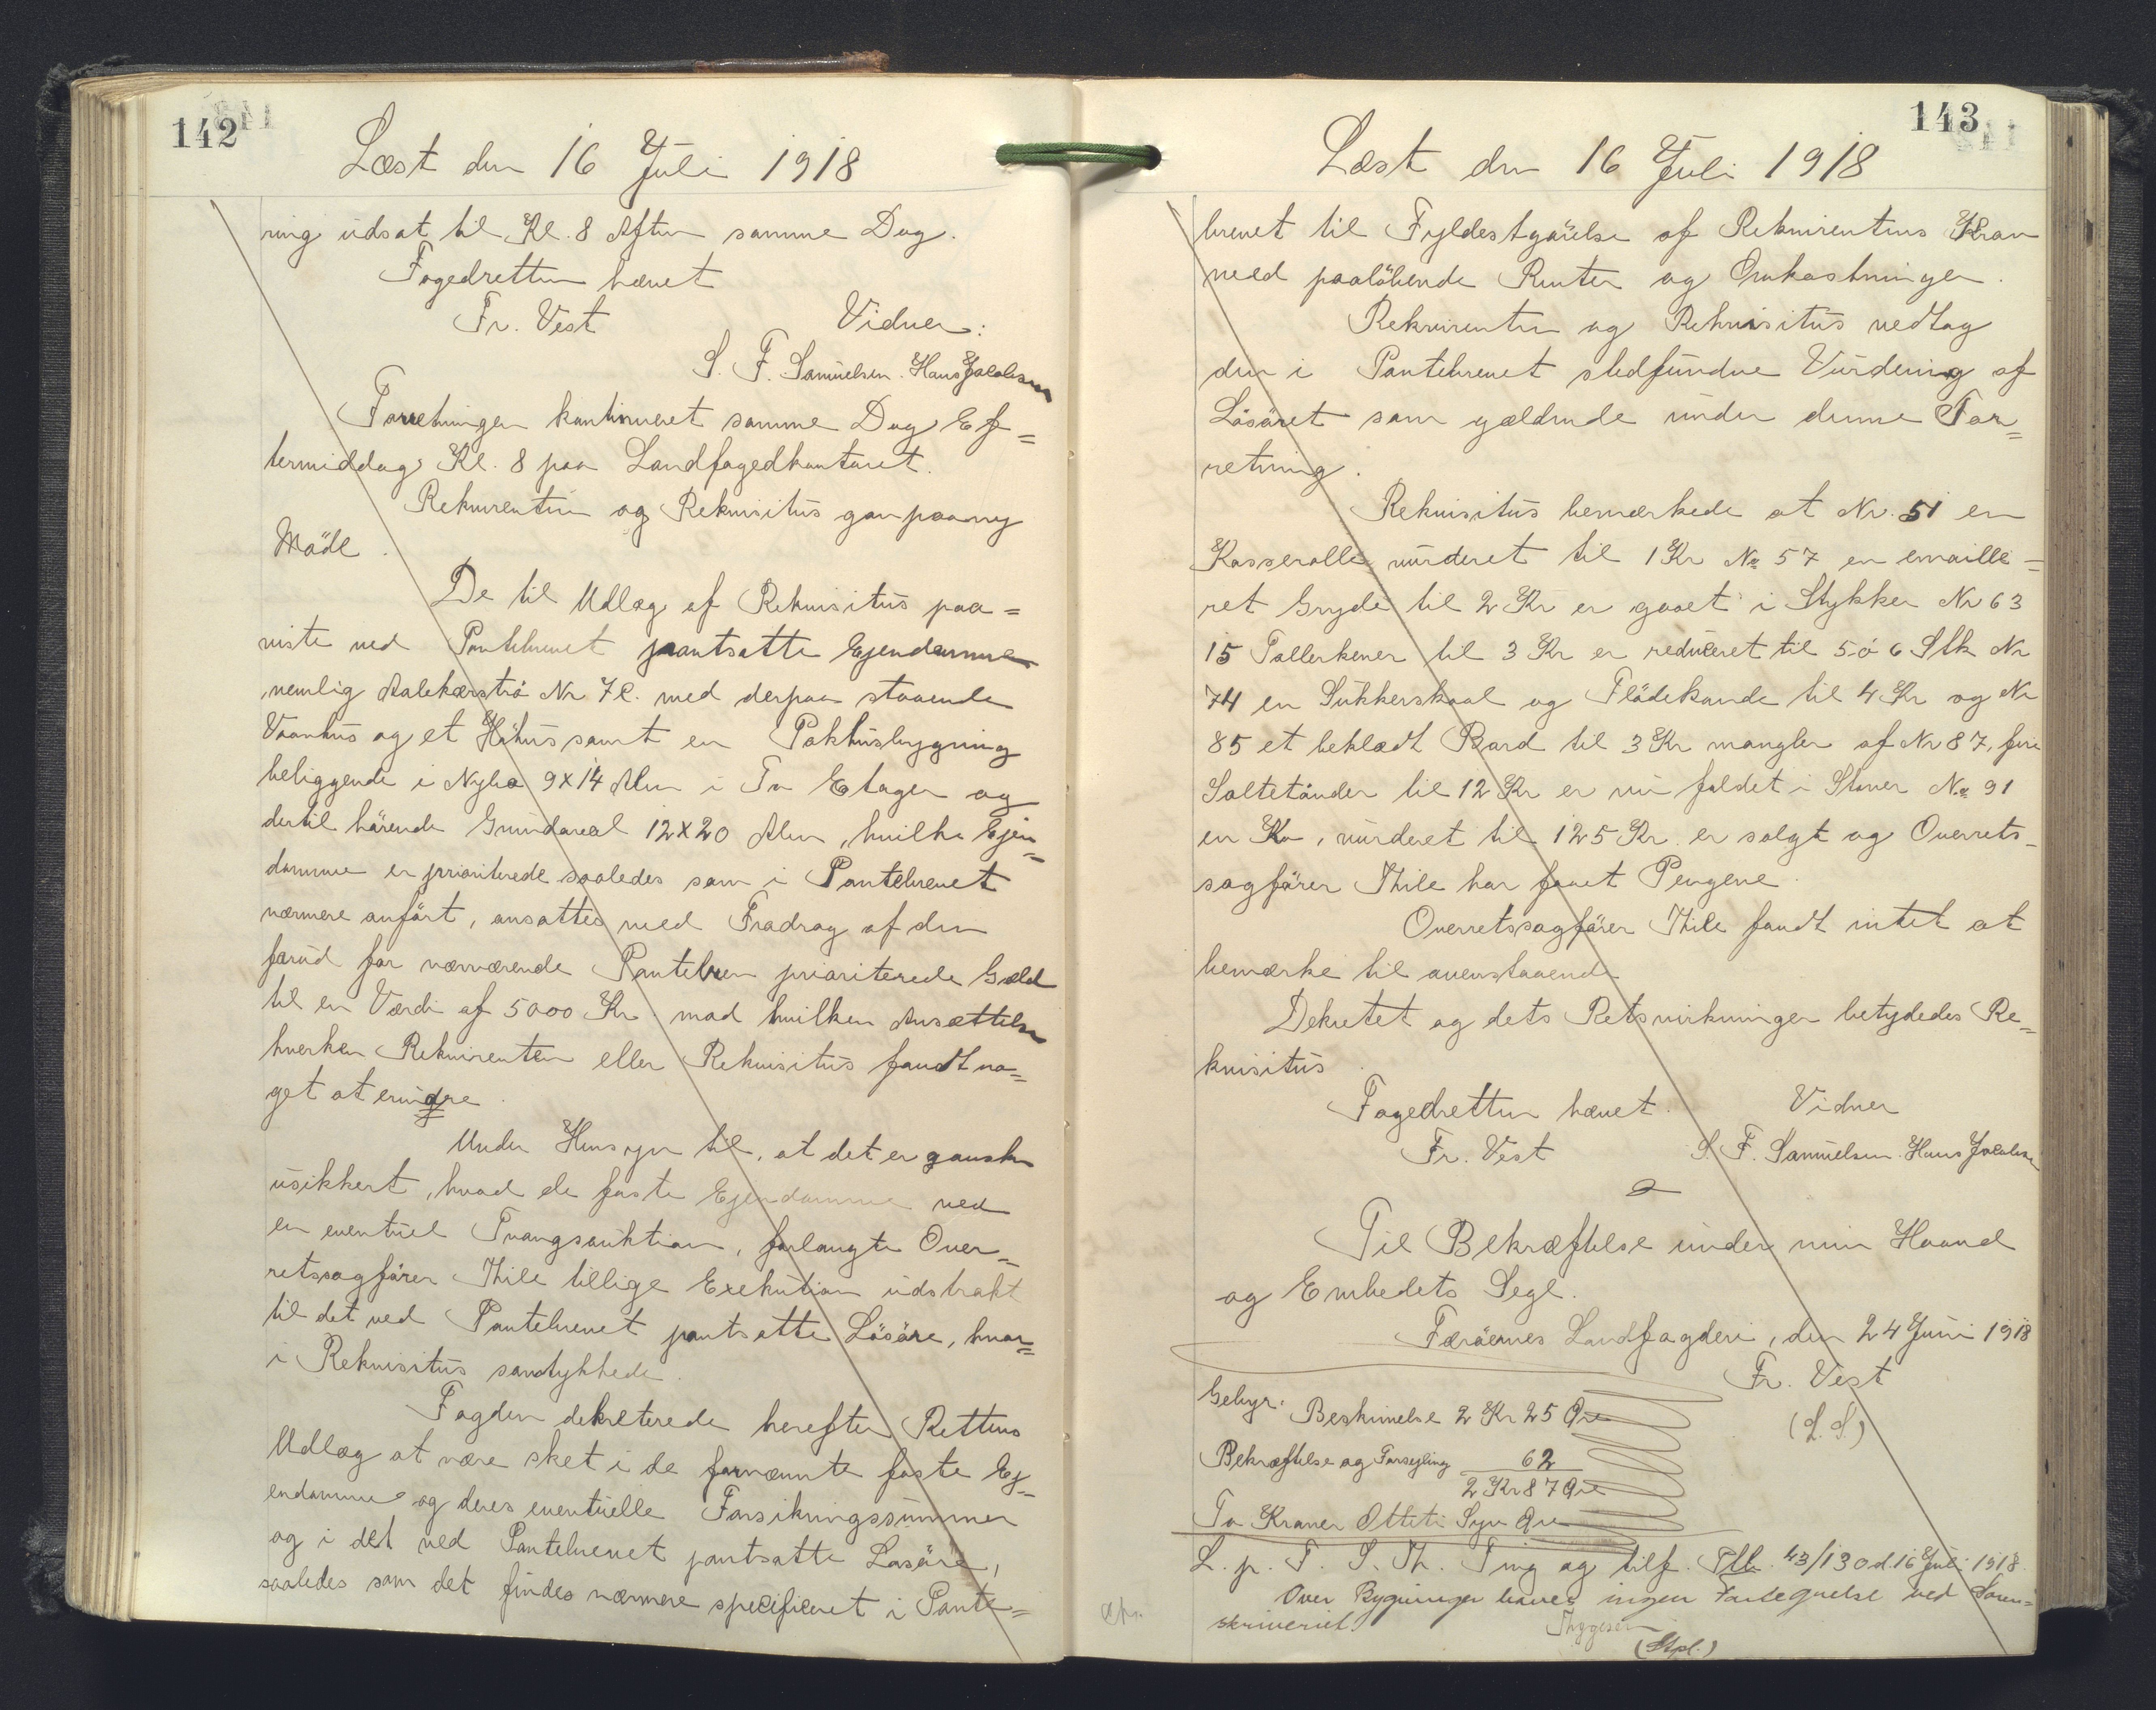 142
Læst den 16 Juli 1918
ring udsat til Kl. 8 Aften samme Dag.
Fogedretten hævet
Fr. Vest Vidner:
S. F. Samuelsen. Hans Jacobsen
Forretningen kontinueret samme Dag Ef=
termiddag Kl. 8 paa Landfogedkontoret.
Rekvirenten og Rekvisitus gav paany
Möde.
De til Udlæg af Rekvisitus paa=
viste ved Pantebrevet pantsatte Ejendomme
nemlig Nr. 7l. med derpaa staaende
Vaanhus og et Höhus samt en Pakhusbygning
beliggende i 9x14 Alen i To Etager og
dertil hörende Grundareal 12x20 Alen, hvilke Ejen=
domme er prioriterede saaledes som i Pantebrevet
nærmere anfört, ansattes med Fradrag af den
forud for nærværende Pantebrev prioriterede Gæld
til en Værdi af 5000 Kr. mod hvilken Ansættelse
hverken Rekvirenten eller Rekvisitus fandt no=
get at erindre.
Under Hensyn til, at det er ganske
usikkert, hvad de faste Ejendomme ved
en eventuel Tvangsauktion, forlangte Over=
retssagförer Thile tillige Exekution udstrakt
til det ved Pantebrevet pantsatte Lösöre, hvor=
i Rekvisitus samtykkede.
Fogden dekreterede herefter Rettens
Udlæg at være sket i de fornævnte faste Ej=
endomme og deres eventuelle Forsikringssummer
og i det ved Pantebrevet pantsatte Lösöre,
saaledes som det findes nærmere specificeret i Pante=
143
Læst den 16 Juli 1918
brevet til Fyldestgörelse af Rekvirentens Krav
med paalöbende Renter og Omkostninger.
Rekvirenten og Rekvisitus vedtog
den i Pantebrevet stedfundne Vurdering af
Lösöret som gældende under denne For=
retning.
Rekvisitus bemærkede at Nr. 51 en
Kasserolle vurderet til 1 Kr No 57 en emaille=
ret Gryde til 2 Kr er gaaet i Stykker Nr 63
15 Tallerkener til 3 Kr er reduceret til 5 ó 6 Stk Nr
74 en Sukkerskaal og Flödekande til 4 Kr og Nr
85 et beklædt Bord til 3 Kr mangler af Nr 87, fire
Saltetönder til 12 Kr er nu faldet i Staver No 91
en Ko, vurderet til 125 Kr. er solgt og Overrets=
sagförer Thile har faaet Pengene.
Overretssagförer Thile fandt intet at
bemærke til ovenstaaende
Dekretet og dets Retsvirkninger betydedes Re=
kvisitus.
Fogedretten hævet. Vidner
Fr. Vest S. F. Samuelsen. Hans Jacobsen
Til Bekræftelse under min Haand
og Embedets Segl.
Færöernes Landfogderi, den 24 Juni 1918
Fr. Vest
(L.S.)
Gebyr: Beskrivelse 2 Kr 25 Öre
Bekræftelse og Forsegling 62
2 Kr 87 Öre
To Kroner Otteti Syv Öre
L. p. T. S. Th. Ting og tilf. Ptb. 43/130 d. 16 Juli 1918.
Over Bygninger haves ingen Fortegnelse ved Soren=
skriveriet.
Thygesen
(Stpl.)